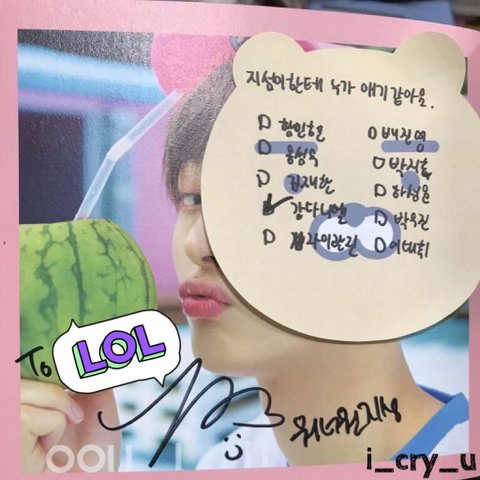 지성이한테 누가 애기 같아요.
황민현 배진영
옹성우 박지훈
김재환 하성운
강다니엘 박우진
라이관린 이대휘
To LOL
워너원지성
i_cry_u